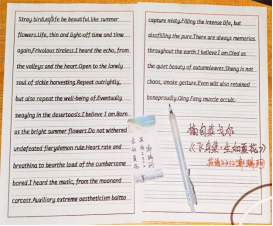 Stray birds,Life be beautiful like summer
flowers.Life, thin and light-off time and time
again,Frivolous tireless.I heard the echo, from
the valleys and the heart.Open to the lonely
soul of sickle harvesting.Repeat outrightly,
but also repeat the well-being of.Eventually
swaying in the desertoasis.I believe I am.Born
as the bright summer flowers.Do not withered
undefeated fieryfidemon rule.Heart rate and
breathing to bearthe load of the cumbersome
bored.I heard the music, from the moonand
carcast.Auxiliary extreme aestheticism baitto
capture misty.Filling the intense life, but
alsofilling the pure.There are always memories
throughout the earth.I believe I am.Died as
the quiet beauty of autumnleaves.Sheng is not
chaos, smoke gesture.Even wilt also retained
boneproudly.Qing Feng muscle occult.
摘自泰戈尔
《飞鸟集·生如夏花》